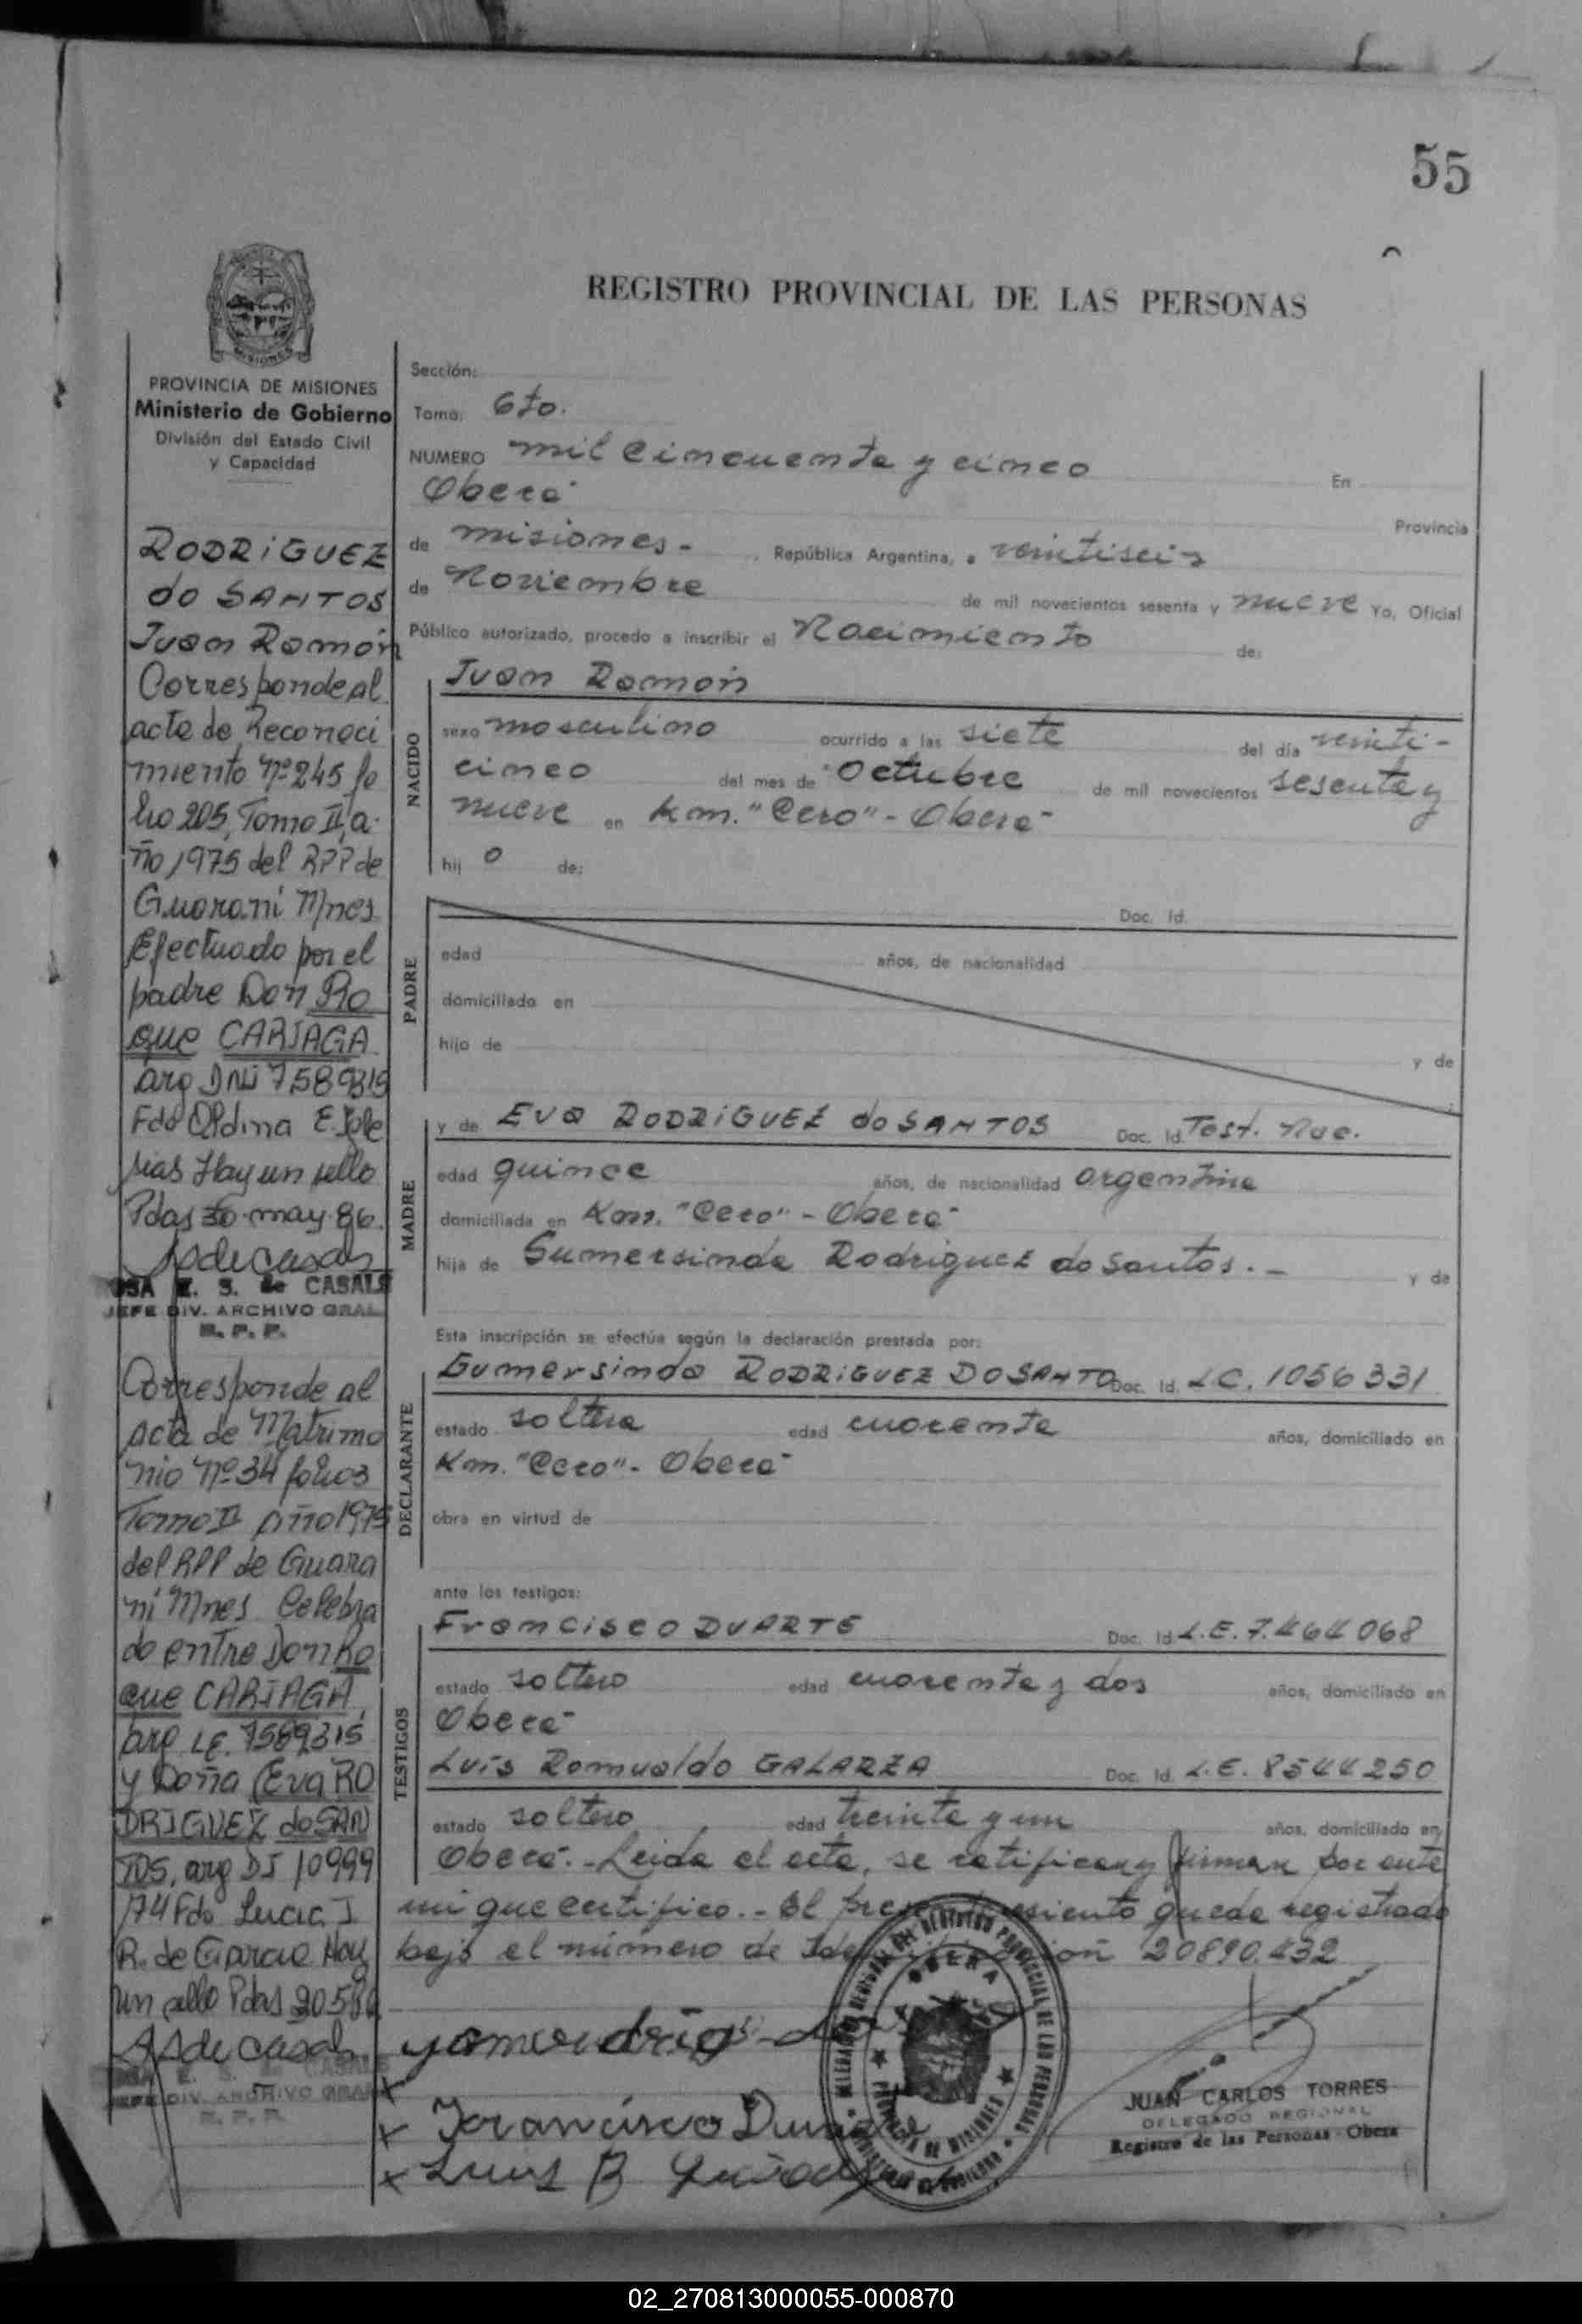 55
REGISTRO PROVINCIAL DE LAS PERSONAS
MISIONES
PROVINCIA DE MISIONES
Ministerio de Gobierno
División del Estado Civil
y Capacidad
RODRIGUEZ
do SANTOS
Juan Ramón
Corresponde al
acta de Reconoci
miento Nº 245 fo
lio 205, Tomo II, a-
ño 1975 del RPP de
Guaraní Mnes
Efectuado por el
padre Don Ro
que CARIAGA
arg DNI 7589315
Fdo Aldina E. Igle
sias Hay un sello
Pdas 30 may 86.
ASdeCasals
E. S. de CASALS
JEFE DIV. ARCHIVO GRAL
R. P. P.
Corresponde al
acta de Matrimo
nio Nº 34 folio 3
Tomo II Año 1975
del RPP de Guara
ní Mnes Celebra
do entre Don Ro
que CARIAGA,
arg LE. 7589315
y Doña Eva RO
DRIGUEZ do SAN
TOS, arg DI 10999
174 Fdo Lucia I
R. de Garcia Hay
un sello Pdas
ASdeCasals
E. S. de CASALS
JEFE DIV. ARCHIVO GRAL
R. P. P.
Sección:
Tomo: 6to.
NUMERO mil cincuenta y cinco En
Oberá Provincia
de Misiones.- , República Argentina, a veintiseis
de Noviembre de mil novecientos sesenta y nueve Yo, Oficial
Público autorizado, procedo a inscribir el Nacimiento de:
NACIDO
Juan Ramón
sexo masculino ocurrido a las siete del día veinti-
cinco del mes de Octubre de mil novecientos sesenta y
nueve en Km. "Cero" - Oberá
hij o de:
PADRE
Doc. Id.
edad años, de nacionalidad
domiciliado en
hijo de y de
MADRE
y de Eva RODRIGUEZ do SANTOS Doc. Id. Test. Nac.
edad quince años, de nacionalidad argentina
domiciliada en Km. "Cero" - Oberá
hija de Gumersinda Rodriguez do Santos.- y de
Esta inscripción se efectúa según la declaración prestada por:
DECLARANTE
Gumersinda RODRIGUEZ DO SANTO Doc. Id. LC. 1056331
estado soltera edad cuarenta años, domiciliado en
Km. "Cero" - Oberá
obra en virtud de
ante los testigos:
TESTIGOS
Francisco DUARTE Doc. Id L.E. 7.464068
estado soltero edad cuarenta y dos años, domiciliado en
Oberá
Luis Romualdo GALARZA Doc. Id. L.E. 8544250
estado soltero edad treinta y un años, domiciliado en
Oberá.- Leida el acta, se ratifican y firman por ante
mi que certifico.- El presente asiento queda registrado
bajo el número de Identificación 20890.432
Francisco Duarte
Luis R
OBERA
PROVINCIA DE MISIONES
JUAN CARLOS TORRES
DELEGADO REGIONAL
Registro de las Personas - Obera
02_270813000055-000870